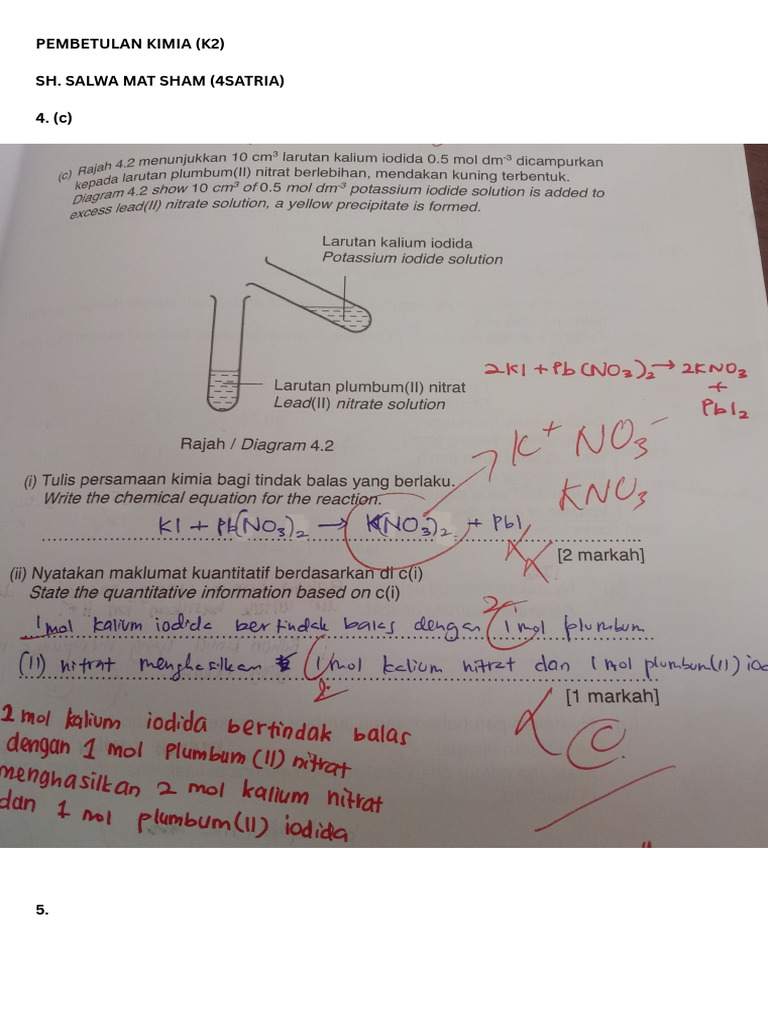 PEMBETULAN KIMIA (K2)
SH. SALWA MAT SHAM (4SATRIA)
4. (c)
(c) Rajah 4.2 menunjukkan 10 cm³ larutan kalium iodida 0.5 mol dm⁻³ dicampurkan
kepada larutan plumbum(II) nitrat berlebihan, mendakan kuning terbentuk.
Diagram 4.2 show 10 cm³ of 0.5 mol dm⁻³ potassium iodide solution is added to
excess lead(II) nitrate solution, a yellow precipitate is formed.
Larutan kalium iodida
Potassium iodide solution
2KI + Pb(NO₃)₂ → 2KNO₃
+
PbI₂
Larutan plumbum(II) nitrat
Lead(II) nitrate solution
Rajah / Diagram 4.2
K⁺ NO₃⁻
KNO₃
(i) Tulis persamaan kimia bagi tindak balas yang berlaku.
Write the chemical equation for the reaction.
KI + Pb(NO₃)₂ → K(NO₃)₂ + PbI
[2 markah]
(ii) Nyatakan maklumat kuantitatif berdasarkan di c(i)
State the quantitative information based on c(i)
2
1 mol kalium iodida bertindak balas dengan 1 mol plumbum
(II) nitrat menghasilkan 1 mol kalium nitrat dan 1 mol plumbum(II) iod
2
[1 markah]
C
2 mol kalium iodida bertindak balas
dengan 1 mol Plumbum (II) nitrat
menghasilkan 2 mol kalium nitrat
dan 1 mol plumbum(II) iodida
5.